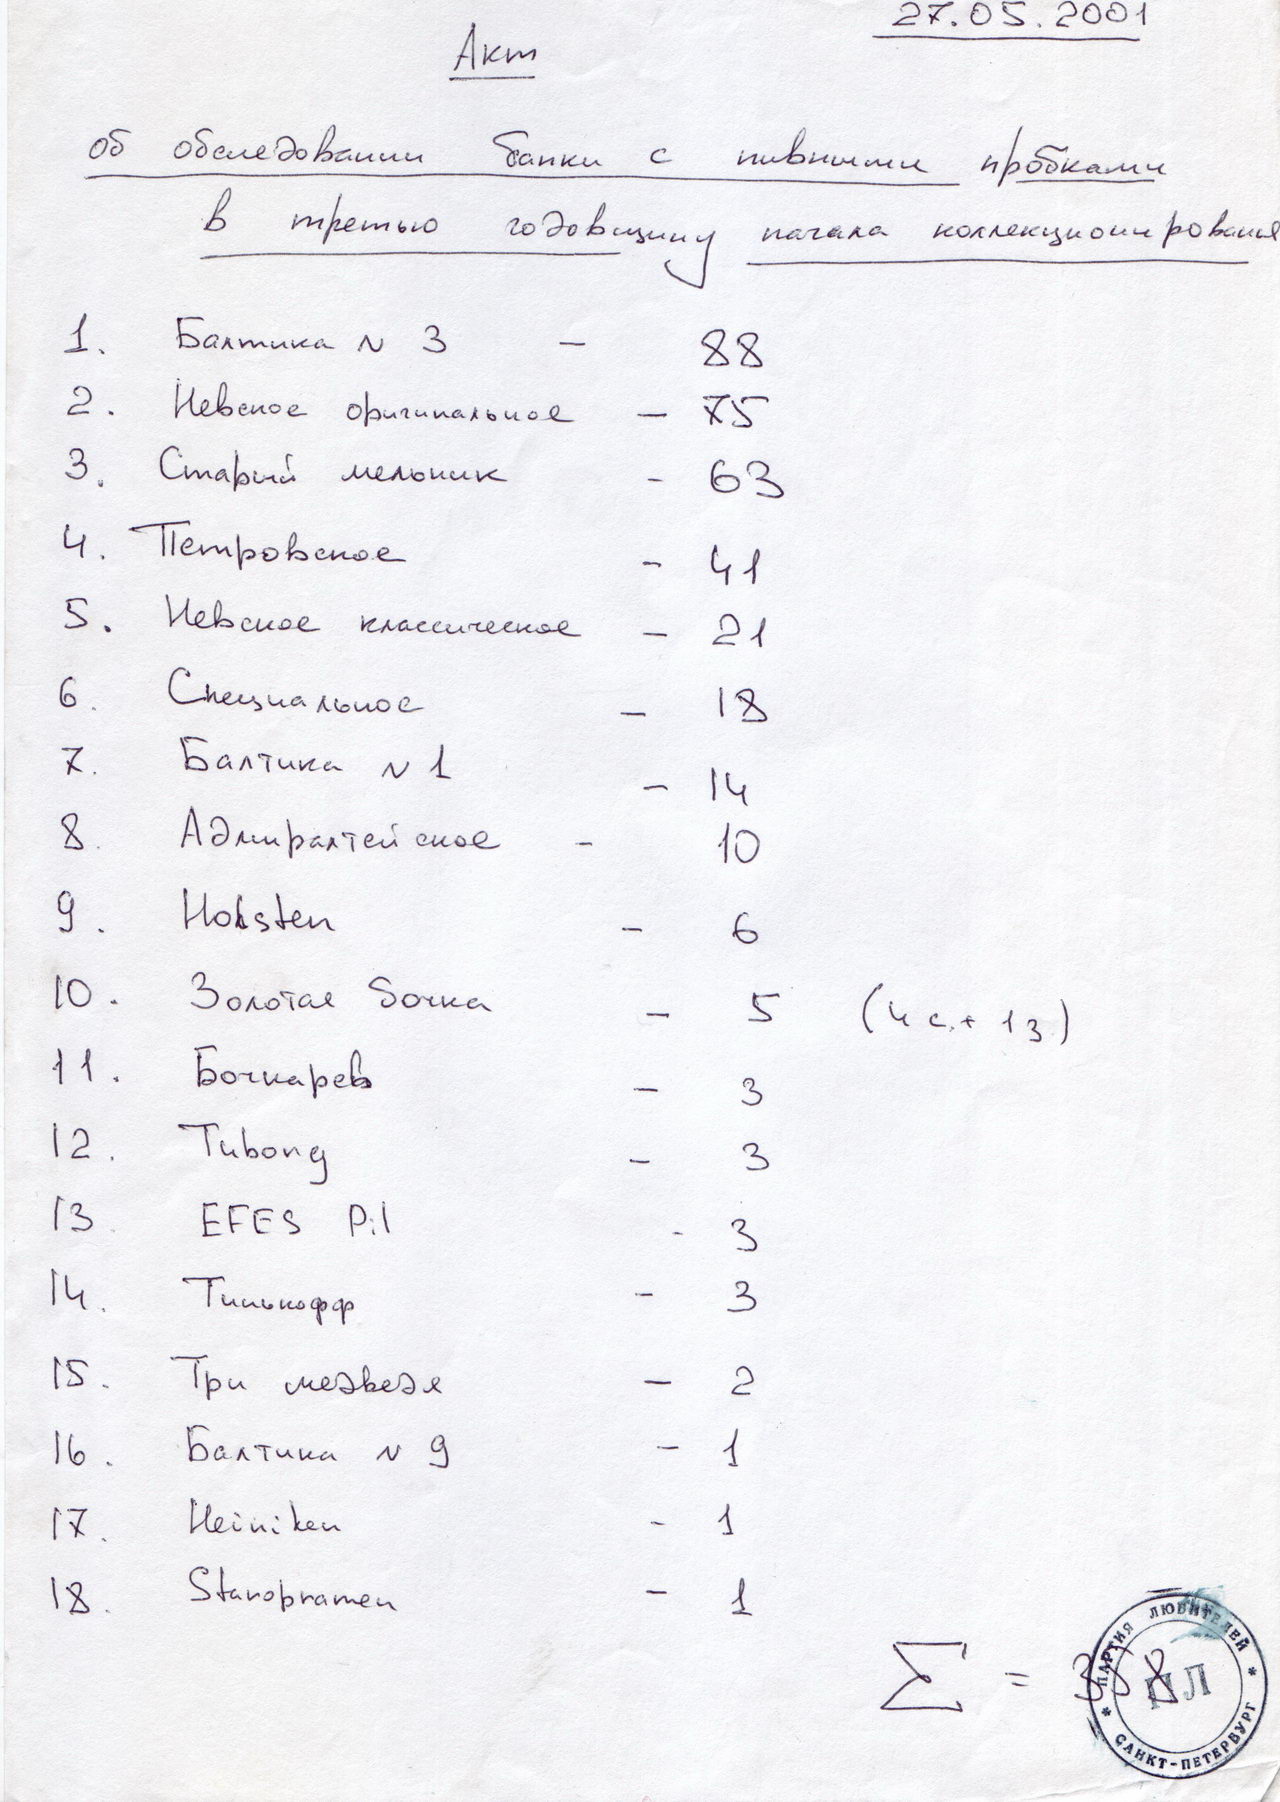 27.05.2001
Акт
об обследовании банки с пивными пробками
в третью годовщину начала коллекционирования
1. Балтика N 3 - 88
2. Невское оригинальное - 75
3. Старый мельник - 63
4. Петровское - 41
5. Невское классическое - 21
6. Специальное - 18
7. Балтика N 1 - 14
8. Адмиралтейское - 10
9. Holsten - 6
10. Золотая бочка - 5 (4 с. + 1 з)
11. Бочкарев - 3
12. Tuborg - 3
13 EFES Pil - 3
14. Тинькофф - 3
15. Три медведя - 2
16. Балтика N 9 - 1
17. Heiniken - 1
18. Staropramen - 1
Σ = 358
ПАРТИЯ ЛЮБИТЕЛЕЙ
* САНКТ-ПЕТЕРБУРГ *